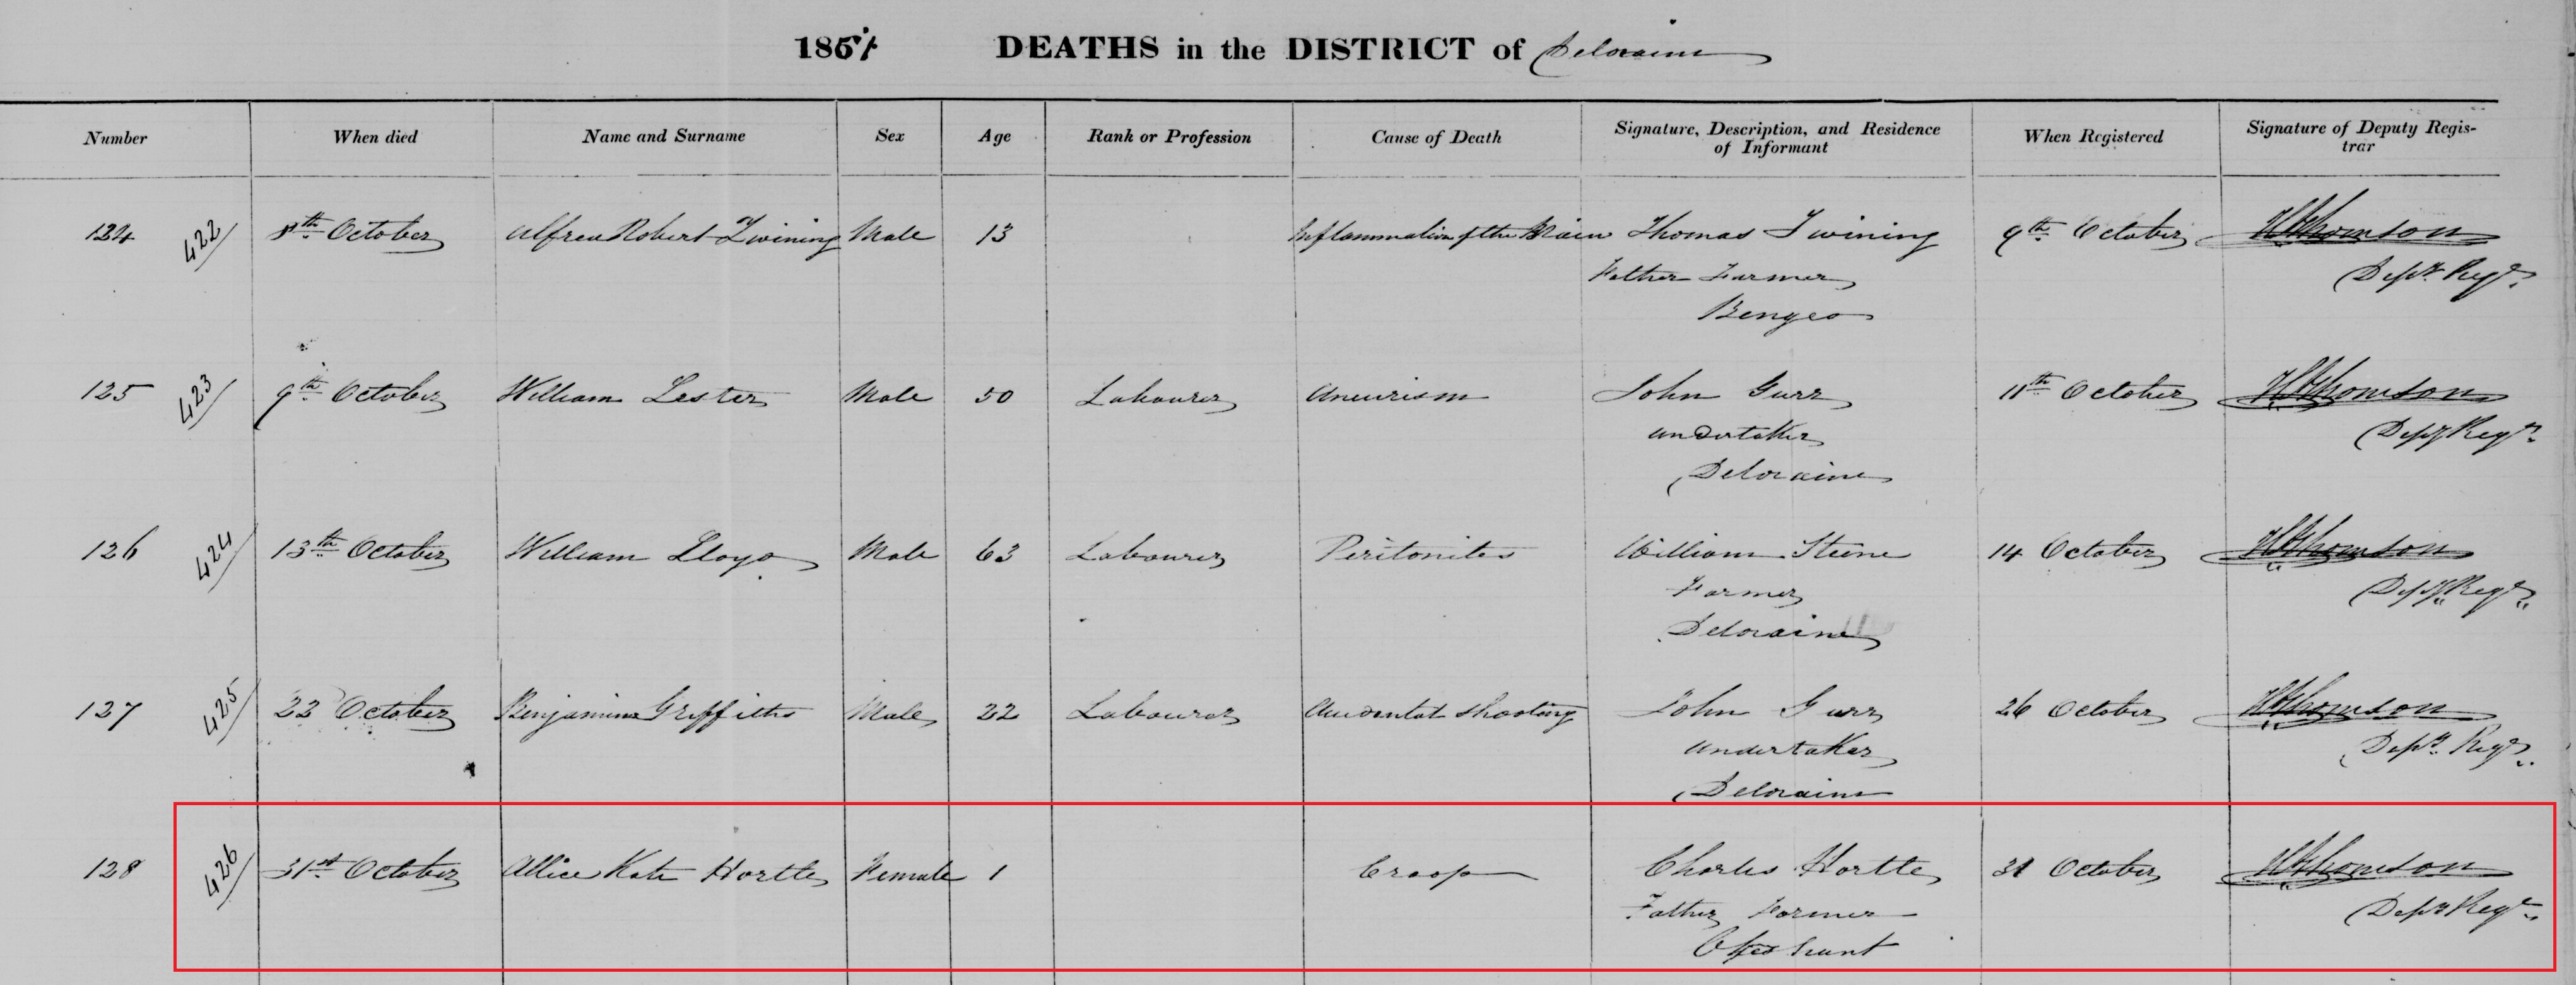 1867 DEATHS in the DISTRICT of Deloraine
Number When died Name and Surname Sex Age Rank or Profession Cause of Death Signature, Description, and Residence of Informant When Registered Signature of Deputy Regis-trar
124 422 8th October Alfred Robert Twining Male 13 Inflammation of the Brain Thomas Twining 9th October Thomson
Father Farmer Depy Regr
Bengeo
125 423 9th October William Lester Male 50 Labourer Aneurism John Gurr 11th October Thomson
Undertaker Depy Regr
Deloraine
126 424 13th October William Lloyd Male 63 Labourer Peritonites William Steene 14 October Thomson
Farmer Depy Regr
Deloraine
127 425 22 October Benjamin Griffiths Male 22 Labourer Accidental Shooting John Gurr 26 October Thomson
Undertaker Depy Regr
Deloraine
128 426 31st October Allice Kate Hortle Female 1 Croop Charles Hortle 31 October Thomson
Father Farmer Depy Regr